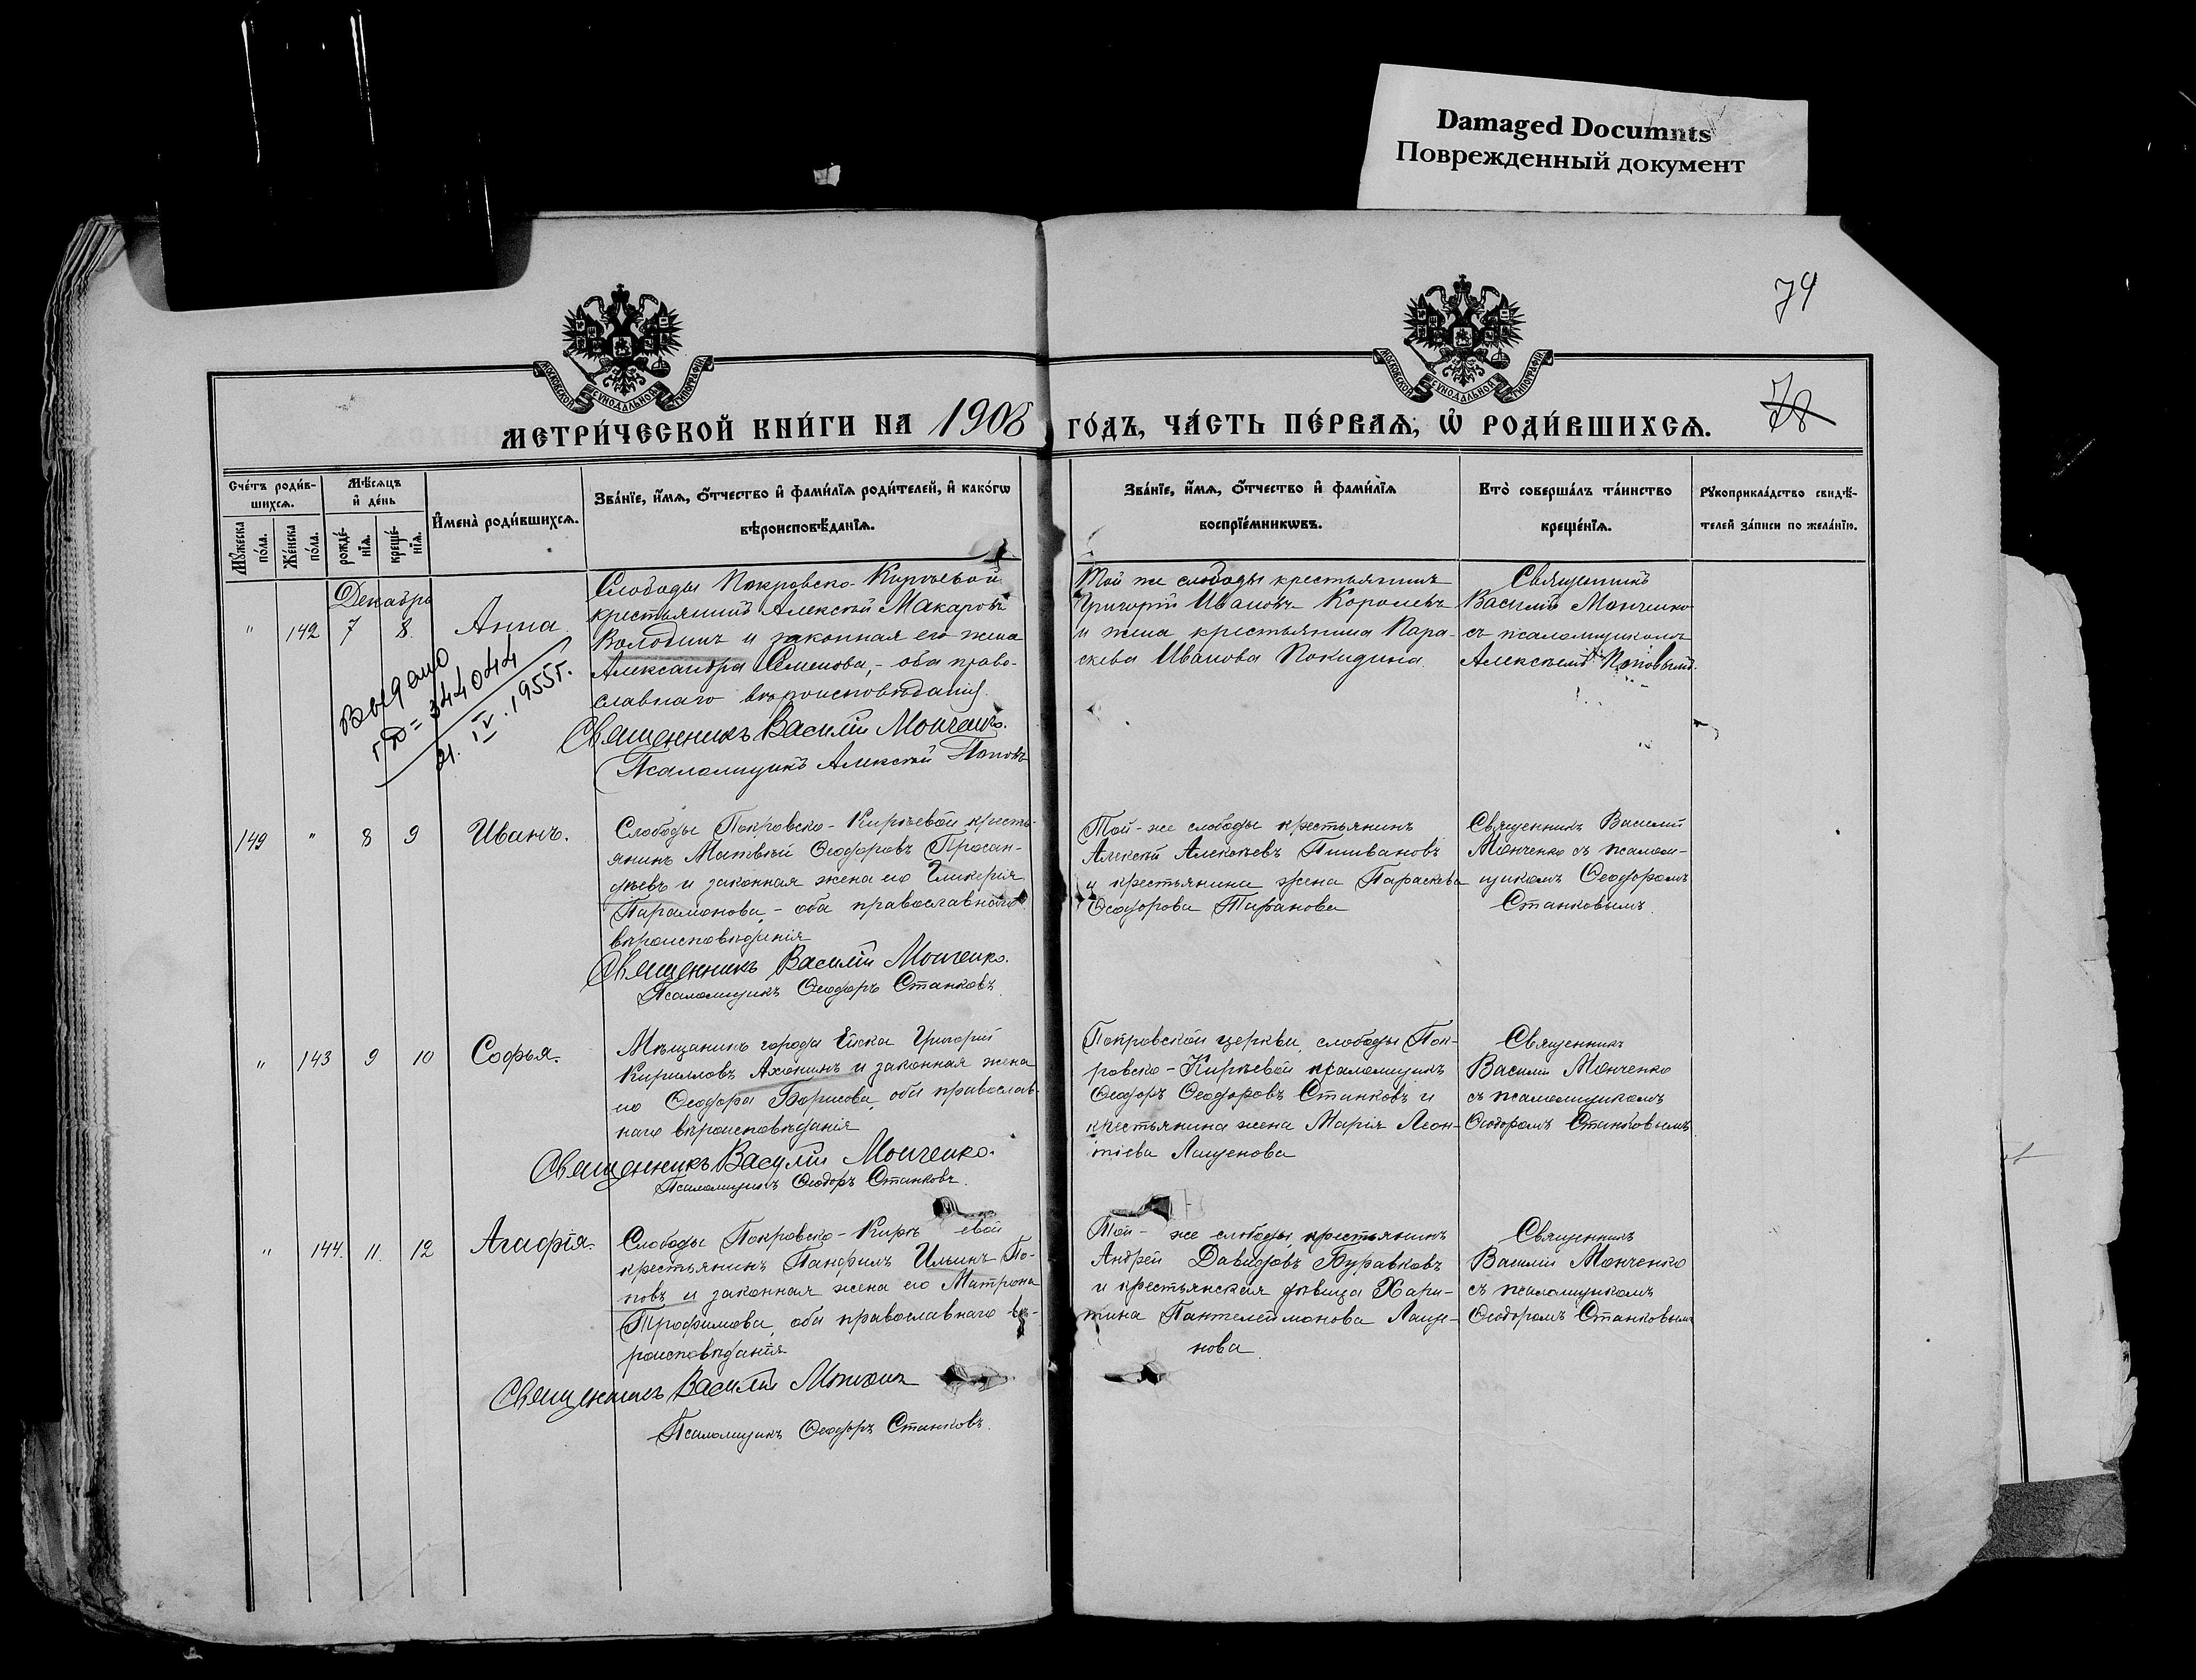 Damaged Documnts
Поврежденный документ
79
78
МОСКОВСКОЙ СѴНОДАЛЬНОЙ ТИПОГРАФІИ
МОСКОВСКОЙ СѴНОДАЛЬНОЙ ТИПОГРАФІИ
МЕТРИ́ЧЕСКОЙ КНИ́ГИ НА 1908 ГО́ДЪ, ЧА́СТЬ ПЕ́РВАѦ, Ѡ҆ РОДИ́ВШИХСѦ.
Сче́тъ роди́в-
шихсѧ.
Мꙋ́жеска по́ла.
Же́нска по́ла.
Мѣ́сѧцъ
и҆ де́нь
рожде́-
нїѧ.
креще́-
нїѧ.
И҆мена̀ роди́вшихсѧ.
Зва́нїе, и҆́мѧ, ѻ҆́тчество и҆ фами́лїѧ роди́телей, и҆ како́гѡ
вѣроисповѣ́данїѧ.
Зва́нїе, и҆́мѧ, ѻ҆́тчество и҆ фами́лїѧ
воспрїе́мникѡвъ.
Кто̀ соверша́лъ та́инство
креще́нїѧ.
Рꙋкоприкла́дство свидѣ́-
телей за́писи по жела́нїю.
Декабрь
" 142 7 8. Анна.
Слободы Покровско-Киръевой
крестьянинъ Алексѣй Макаровъ
Володинъ и законная его жена
Александра Семенова, - оба право-
славнаго вѣроисповѣданія.
Священникъ Василій Монченко.
Псаломщикъ Алексѣй Поповъ
Той же слободы крестьянинъ
Григорій Ивановъ Королевъ
и жена крестьянина Пара-
скева Иванова Покидина.
Священникъ
Василій Монченко
съ псаломщикомъ
Алексѣемъ Поповымъ.
Выдано
344044
21. IV. 1955 г.
149 " 8 9 Иванъ.
Слободы Покровско-Киръевой кресть-
янинъ Матвѣй Ѳеодоровъ Просан-
дѣевъ и законная жена его Гликерія
Парамонова, - оба православнаго
вѣроисповѣданія
Священникъ Василій Монченко.
Псаломщикъ Ѳеодоръ Станковъ
Той-же слободы крестьянинъ
Алексѣй Алексѣевъ
и крестьянина жена Параскева
Ѳеодорова
Священникъ Василій
Монченко съ псалом-
щикомъ Ѳеодоромъ
Станковымъ.
" 143 9 10 Софья.
Мѣщанинъ города Ейска Григорій
Кирилловъ Ахонинъ и законная жена
его Ѳеодора Борисова, оба православ-
наго вѣроисповѣданія
Священникъ Василій Монченко.
Псаломщикъ Ѳеодоръ Станковъ.
Покровской церкви, слободы Пок-
ровско-Киръевой псаломщикъ
Ѳеодоръ Ѳеодоровъ Станковъ и
крестьянина жена Марія Леон-
тіева Лащенова
Священникъ
Василій Монченко
съ псаломщикомъ
Ѳеодоромъ Станковымъ
" 144. 11. 12 Агафія.
Слободы Покровско-Киръ евой
крестьянинъ Панфилъ Ильинъ По-
повъ и законная жена его Матрона
Трофимова, оба православнаго вѣ-
роисповѣданія
Священникъ Василій Монченко
Псаломщикъ Ѳеодоръ Станковъ.
Той-же слободы, крестьянинъ
Андрей Давидовъ Буравковъ
и крестьянская дѣвица Хари-
тина Пантелеймонова Лаще-
нова.
Священникъ
Василій Монченко
съ псаломщикомъ
Ѳеодоромъ Станковымъ